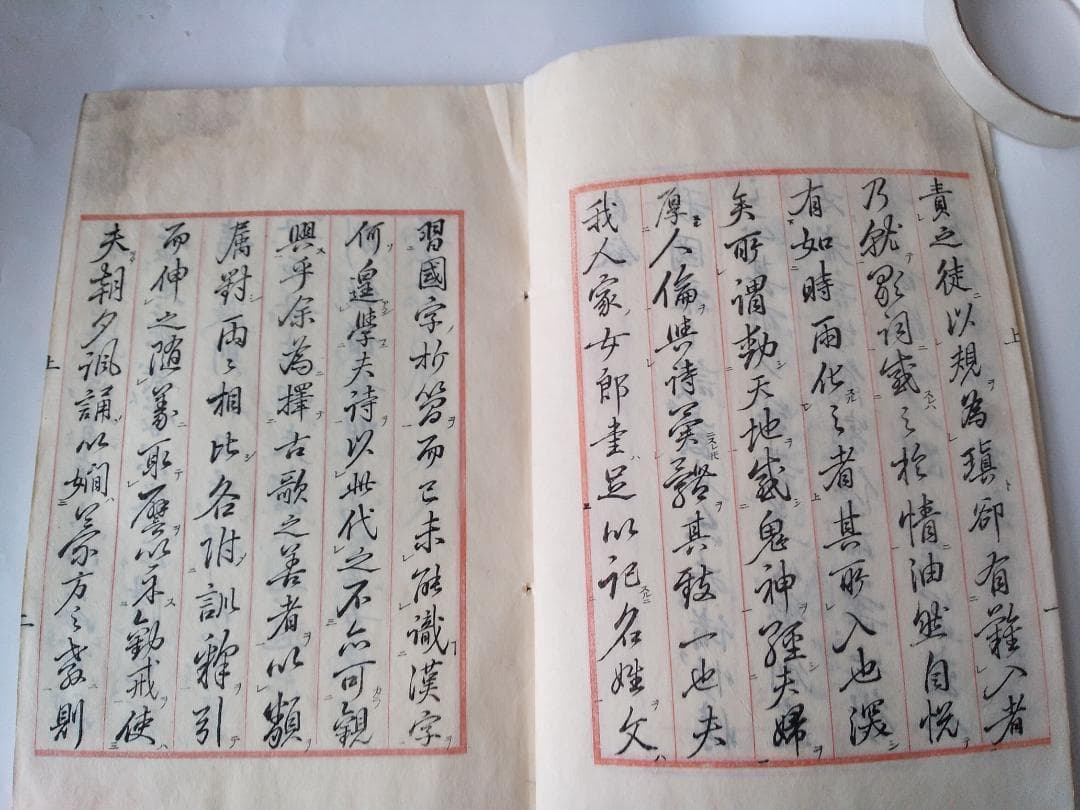 責之徒以規為瑱卻有難入者
乃就歌詞感之於情油然自悦
有如時雨化之者其所入也深
矣所謂動天地感鬼神經夫婦
厚人倫與詩異體其致一也夫
我人家女郎書足以記名姓文
習國字折簡而已未能識漢字
何遑學夫詩以此代之不亦可觀
興乎余為擇古歌之善者以類
属對両々相比各附訓釋引
而伸之随義取譬以示勸戒使
夫朝夕諷誦以嫺蒙方之教則